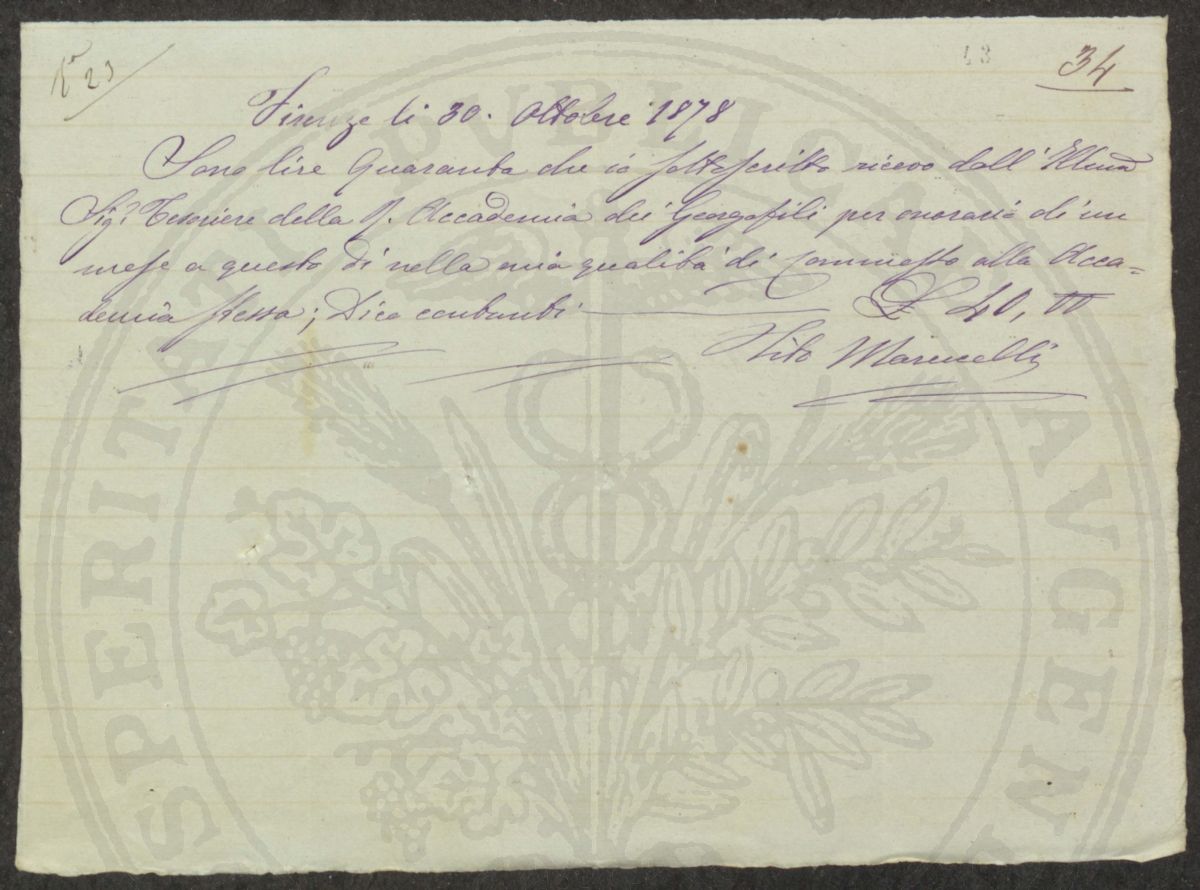 N° 23
43
34
Firenze li 30. Ottobre 1878
Sono lire Quaranta che io sottoscritto ricevo dall' Illmo
Sigr Tesoriere della R. Accademia dei Georgofili per onorario di un
mese a questo dì nella mia qualità di Commesso alla Acca=
demia stessa; Dico contanti £ 40,00
Vito Marucelli
PROSPERITATI PUBLICAE AVGENDAE